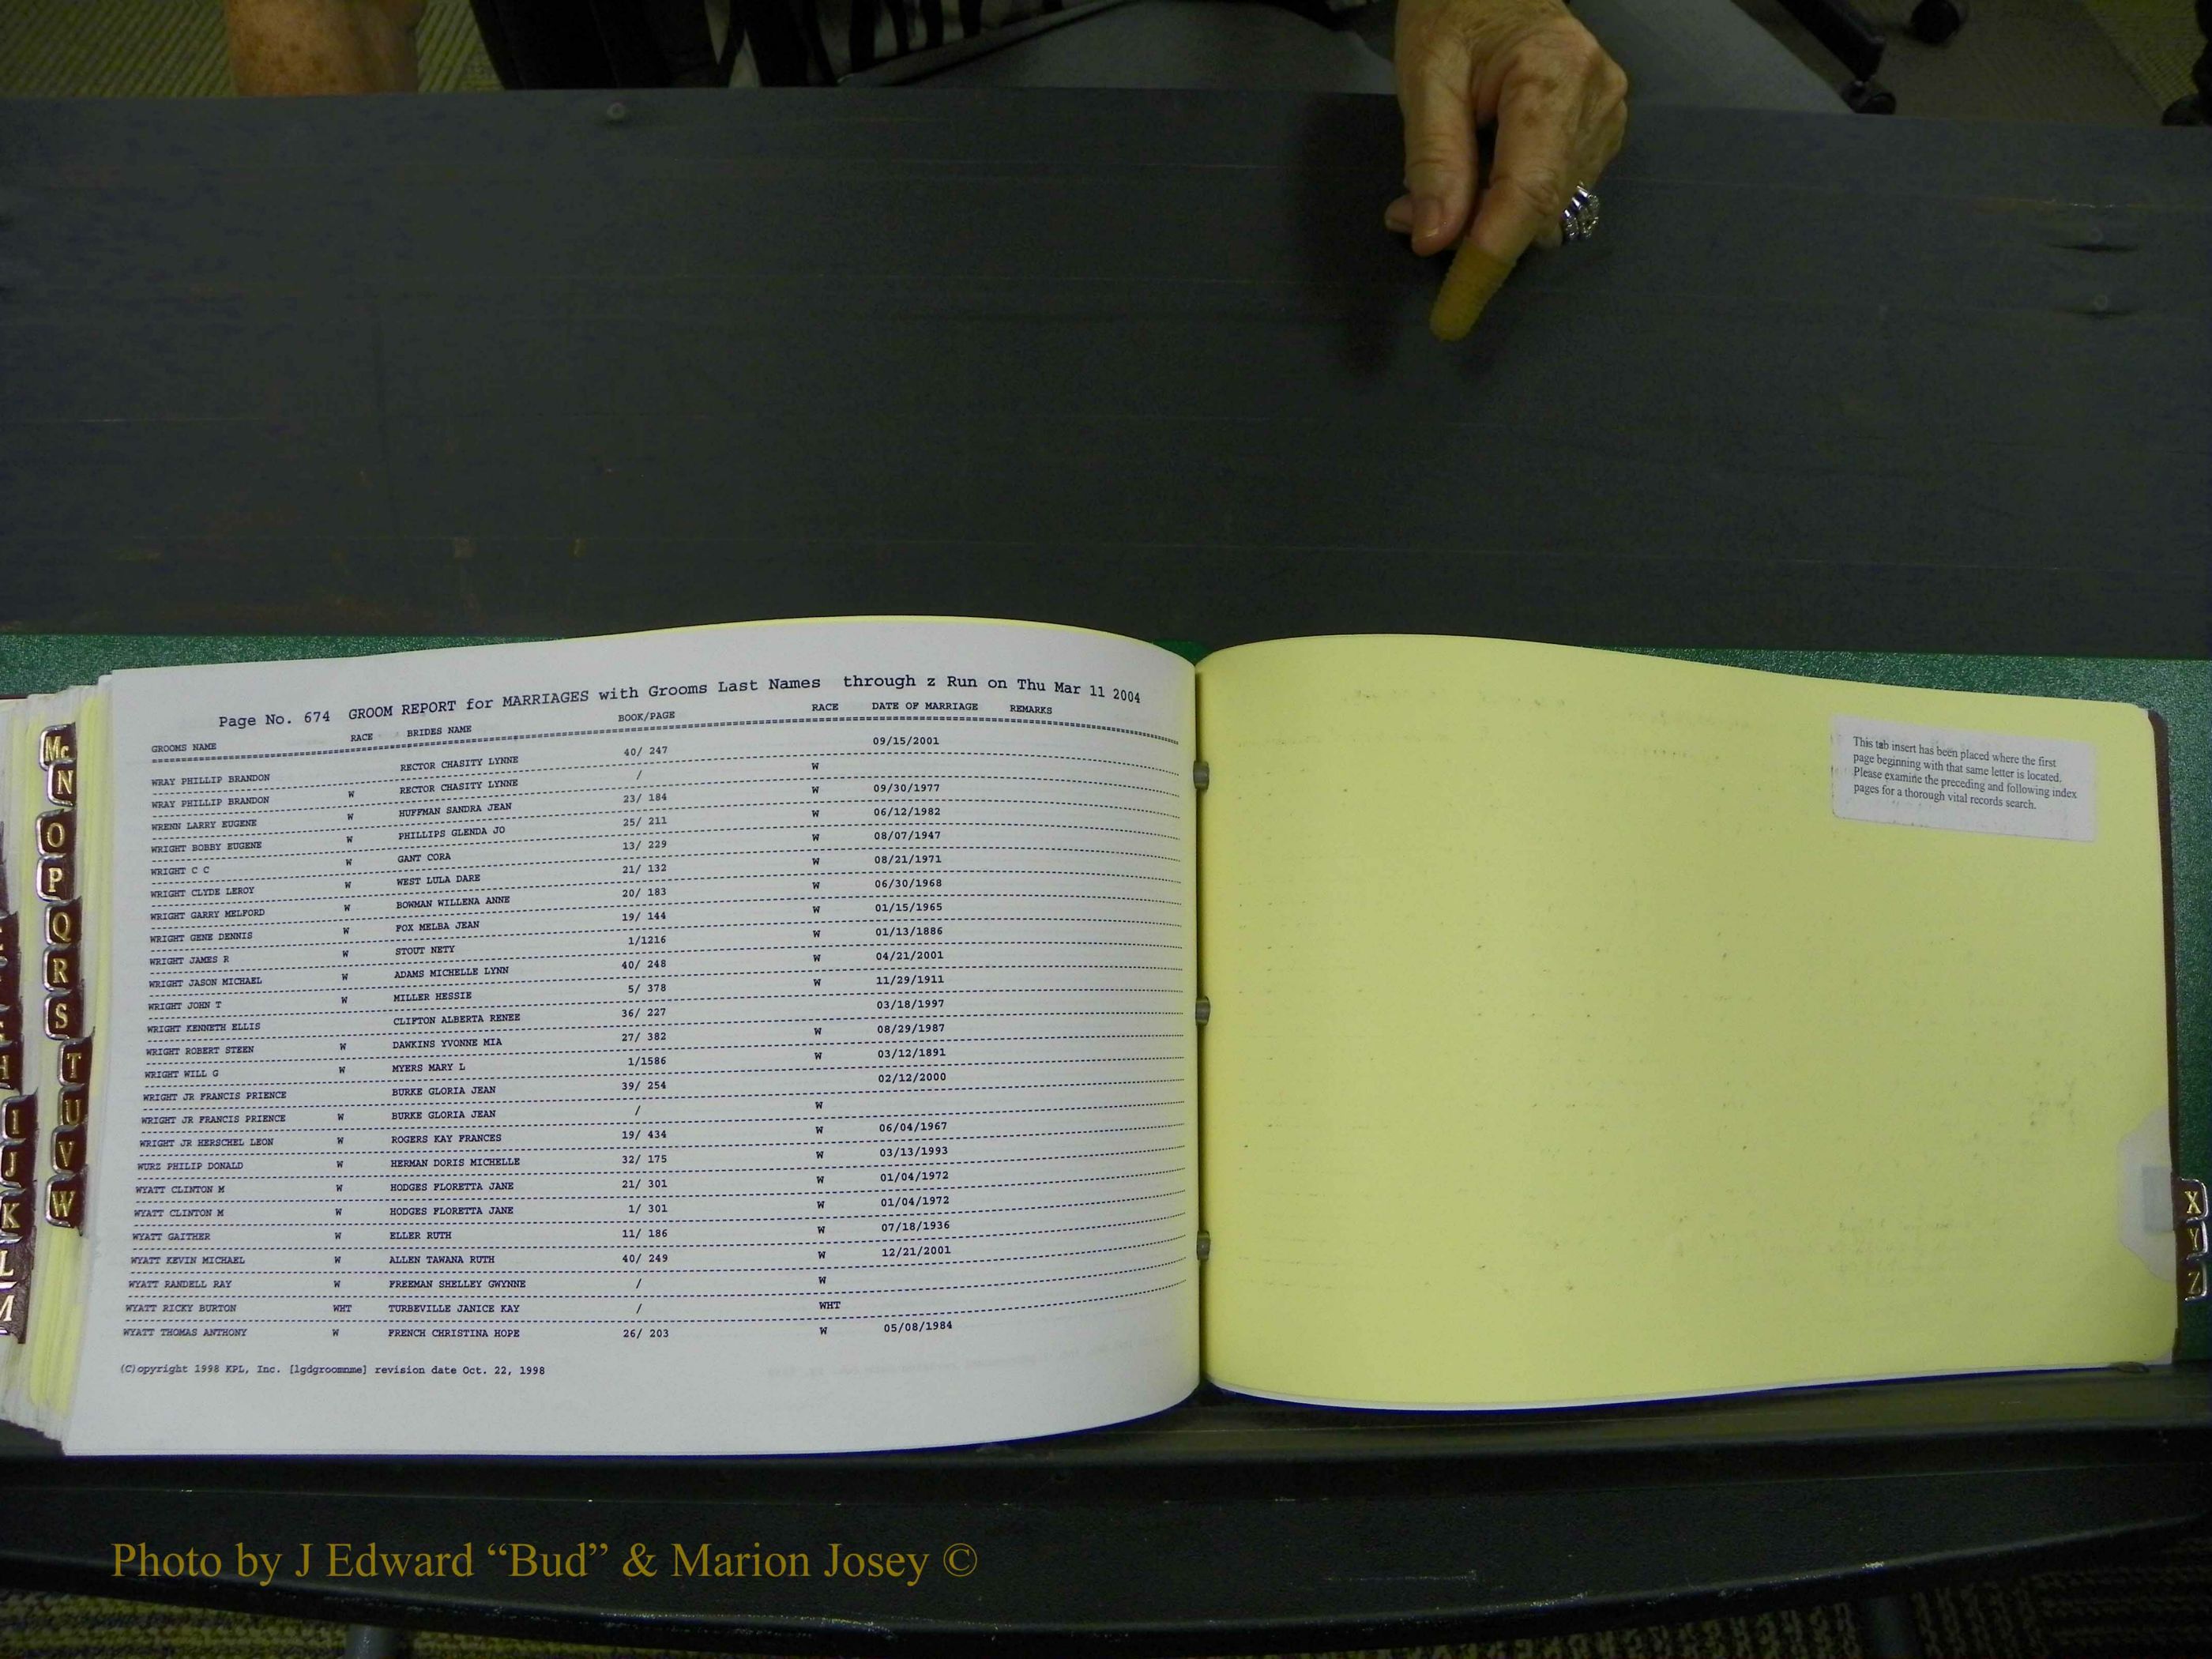 Page No. 674 GROOM REPORT for MARRIAGES with Grooms Last Names through z Run on Thu Mar 11 2004
GROOMS NAME RACE BRIDES NAME BOOK/PAGE RACE DATE OF MARRIAGE REMARKS
WRAY PHILLIP BRANDON RECTOR CHASITY LYNNE 40/ 247 09/15/2001
WRAY PHILLIP BRANDON W RECTOR CHASITY LYNNE / W
WRENN LARRY EUGENE W HUFFMAN SANDRA JEAN 23/ 184 W 09/30/1977
WRIGHT BOBBY EUGENE W PHILLIPS GLENDA JO 25/ 211 W 06/12/1982
WRIGHT C C W GANT CORA 13/ 229 W 08/07/1947
WRIGHT CLYDE LEROY W WEST LULA DARE 21/ 132 W 08/21/1971
WRIGHT GARRY MELFORD W BOWMAN WILLENA ANNE 20/ 183 W 06/30/1968
WRIGHT GENE DENNIS W FOX MELBA JEAN 19/ 144 W 01/15/1965
WRIGHT JAMES R W STOUT NETY 1/1216 W 01/13/1886
WRIGHT JASON MICHAEL W ADAMS MICHELLE LYNN 40/ 248 W 04/21/2001
WRIGHT JOHN T W MILLER HESSIE 5/ 378 W 11/29/1911
WRIGHT KENNETH ELLIS CLIFTON ALBERTA RENEE 36/ 227 03/18/1997
WRIGHT ROBERT STEEN W DAWKINS YVONNE MIA 27/ 382 W 08/29/1987
WRIGHT WILL G W MYERS MARY L 1/1586 W 03/12/1891
WRIGHT JR FRANCIS PRIENCE BURKE GLORIA JEAN 39/ 254 02/12/2000
WRIGHT JR FRANCIS PRIENCE W BURKE GLORIA JEAN / W
WRIGHT JR HERSCHEL LEON W ROGERS KAY FRANCES 19/ 434 W 06/04/1967
WURZ PHILIP DONALD W HERMAN DORIS MICHELLE 32/ 175 W 03/13/1993
WYATT CLINTON M W HODGES FLORETTA JANE 21/ 301 W 01/04/1972
WYATT CLINTON M W HODGES FLORETTA JANE 1/ 301 W 01/04/1972
WYATT GAITHER W ELLER RUTH 11/ 186 W 07/18/1936
WYATT KEVIN MICHAEL W ALLEN TAWANA RUTH 40/ 249 W 12/21/2001
WYATT RANDELL RAY W FREEMAN SHELLEY GWYNNE / W
WYATT RICKY BURTON WHT TURBEVILLE JANICE KAY / WHT
WYATT THOMAS ANTHONY W FRENCH CHRISTINA HOPE 26/ 203 W 05/08/1984
(C)opyright 1998 KPL, Inc. [lgdgroomnme] revision date Oct. 22, 1998
This tab insert has been placed where the first
page beginning with that same letter is located.
Please examine the preceding and following index
pages for a thorough vital records search.
H
I
J
K
L
M
Mc
N
O
P
Q
R
S
T
U
V
W
X
Y
Z
Photo by J Edward “Bud” & Marion Josey ©